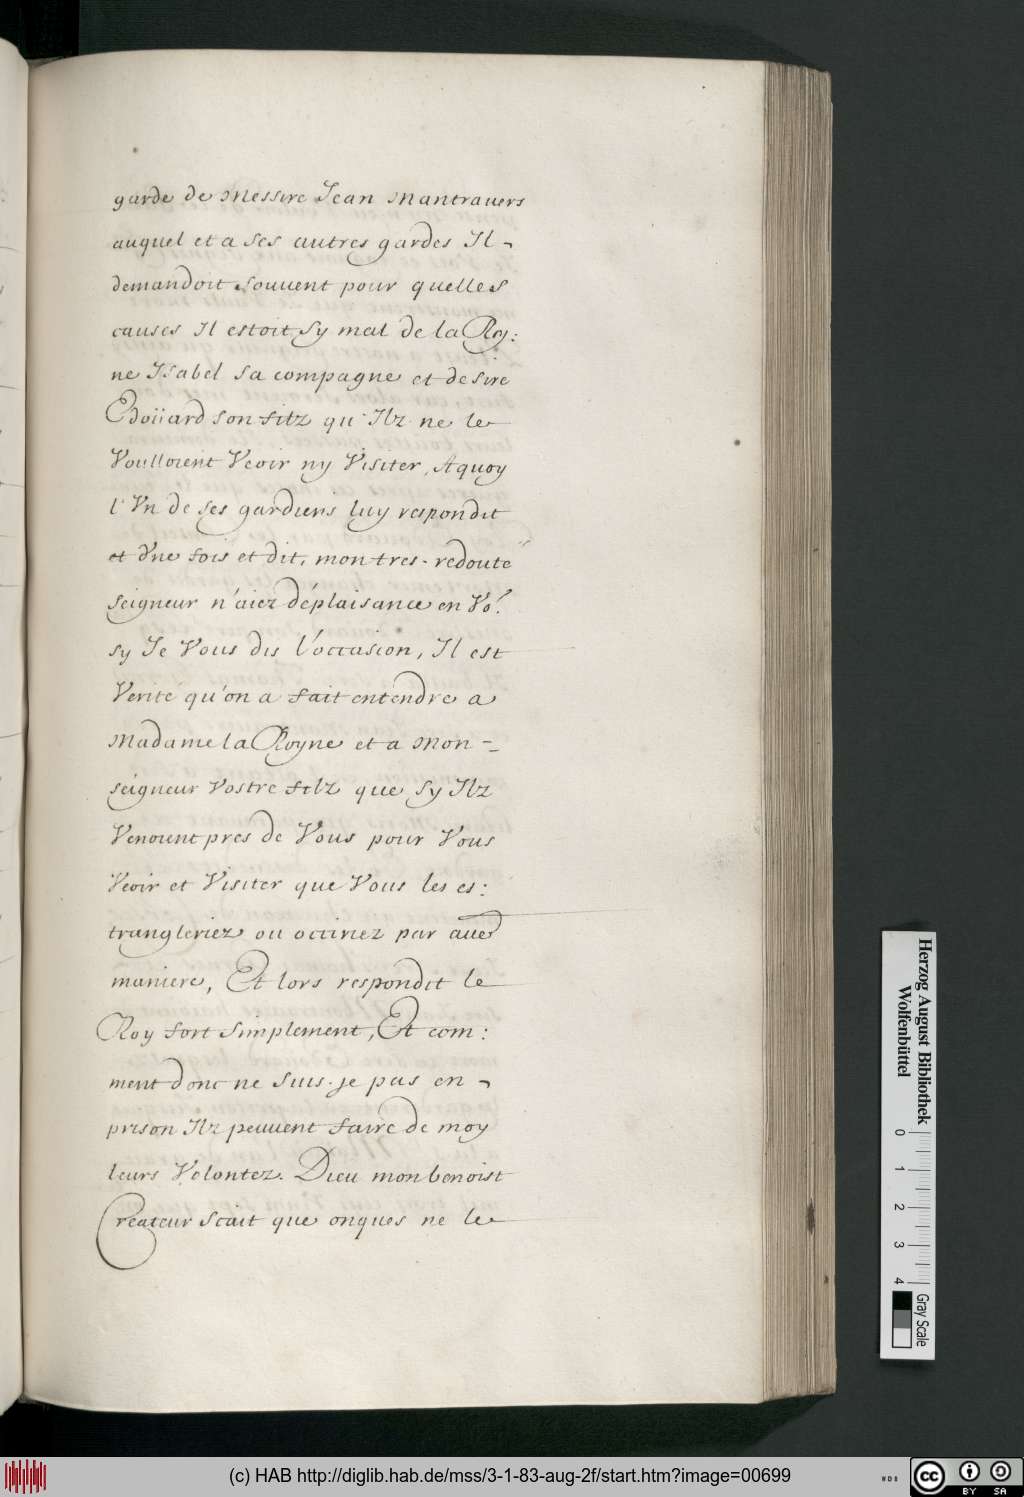 garde de Messire Jean Mantrauers
auquel et a ses autres gardes Il ¬
demandoit souuent pour quelles
causes Il estoit sy mal de la Roy:
ne Isabel sa compagne et de sire
Edoüard son filz qu'Ilz ne le
Voulloient Veoir ny Visiter, Aquoy
l'Vn de ses gardiens luy respondit
et d'ne fois et dit, mon tres-redouté
seigneur n'aiez déplaisance en Vo.'
sy Je Vous dis l'occasion, Il est
Verité qu'on a fait entendre a
Madame la Royne et a Mon-
seigneur Vostre filz que sy Ilz
Venoient pres de Vous pour Vous
Veoir et Visiter que Vous les es:
trangleriez ou occiriez par aue
maniere, Et lors respondit le
Roy fort simplement, Et com:
ment donc ne suis-je pas en ¬
prison Ilz peuuent faire de moy
leurs Volontez. Dieu mon benoist
Createur scait que onques ne le
Herzog August Bibliothek
Wolfenbüttel
0 1 2 3 4
Gray Scale
(c) HAB http://diglib.hab.de/mss/3-1-83-aug-2f/start.htm?image=00699
WDB
cc BY SA